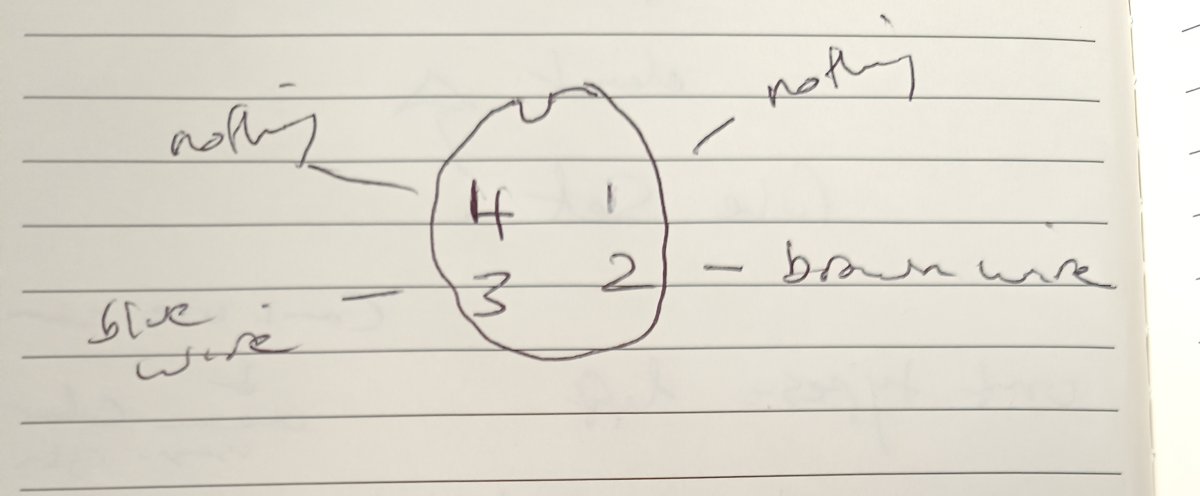 nothing
nothing
4 1
3 2 - brown wire
blue
wire